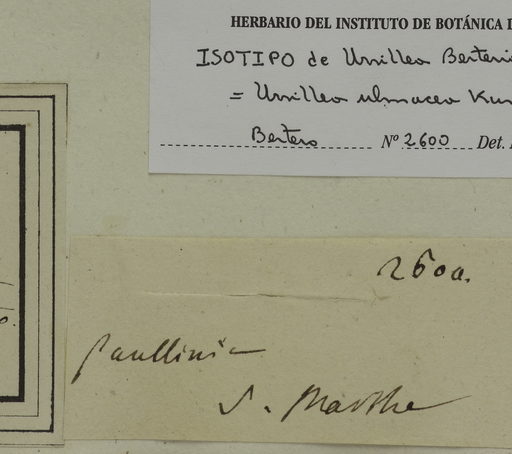 HERBARIO DEL INSTITUTO DE BOTÁNICA D
ISOTIPO de Urvillea Berteri
= Urvillea ulmacea Kun
Bertero Nº 2600 Det.
2600.
paullinia
S. Marthe